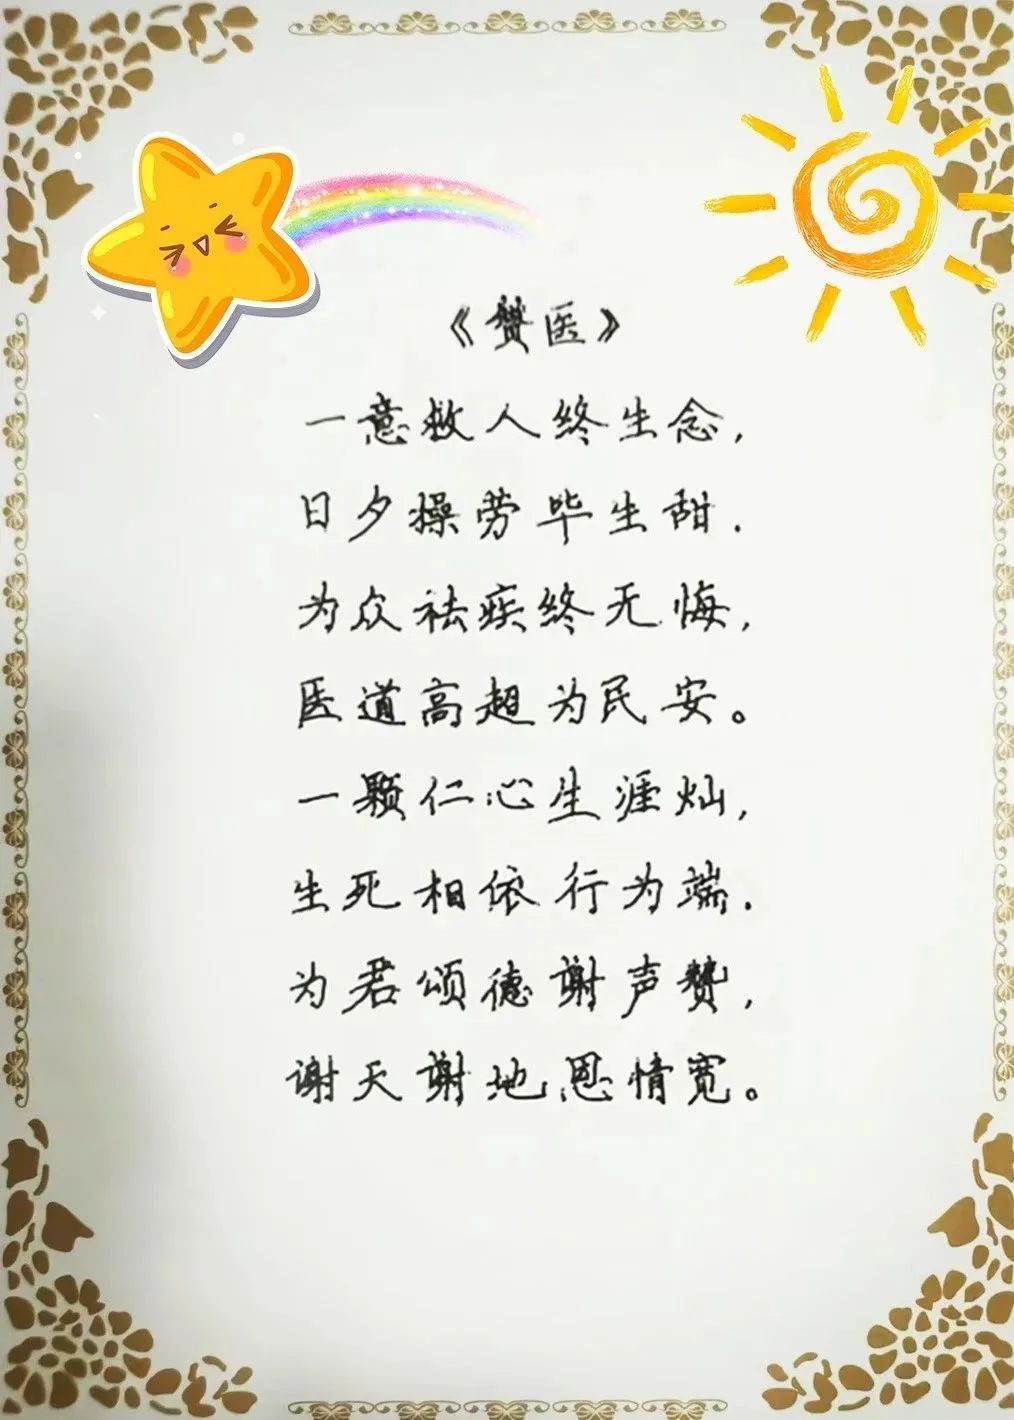 《赞医》
一意救人终生念，
日夕操劳毕生甜．
为众祛疾终无悔，
医道高超为民安。
一颗仁心生涯灿，
生死相依行为端．
为君颂德谢声赞，
谢天谢地恩情宽。